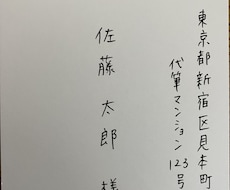 東京都新宿区見本町
代筆マンション123号
佐藤太郎様